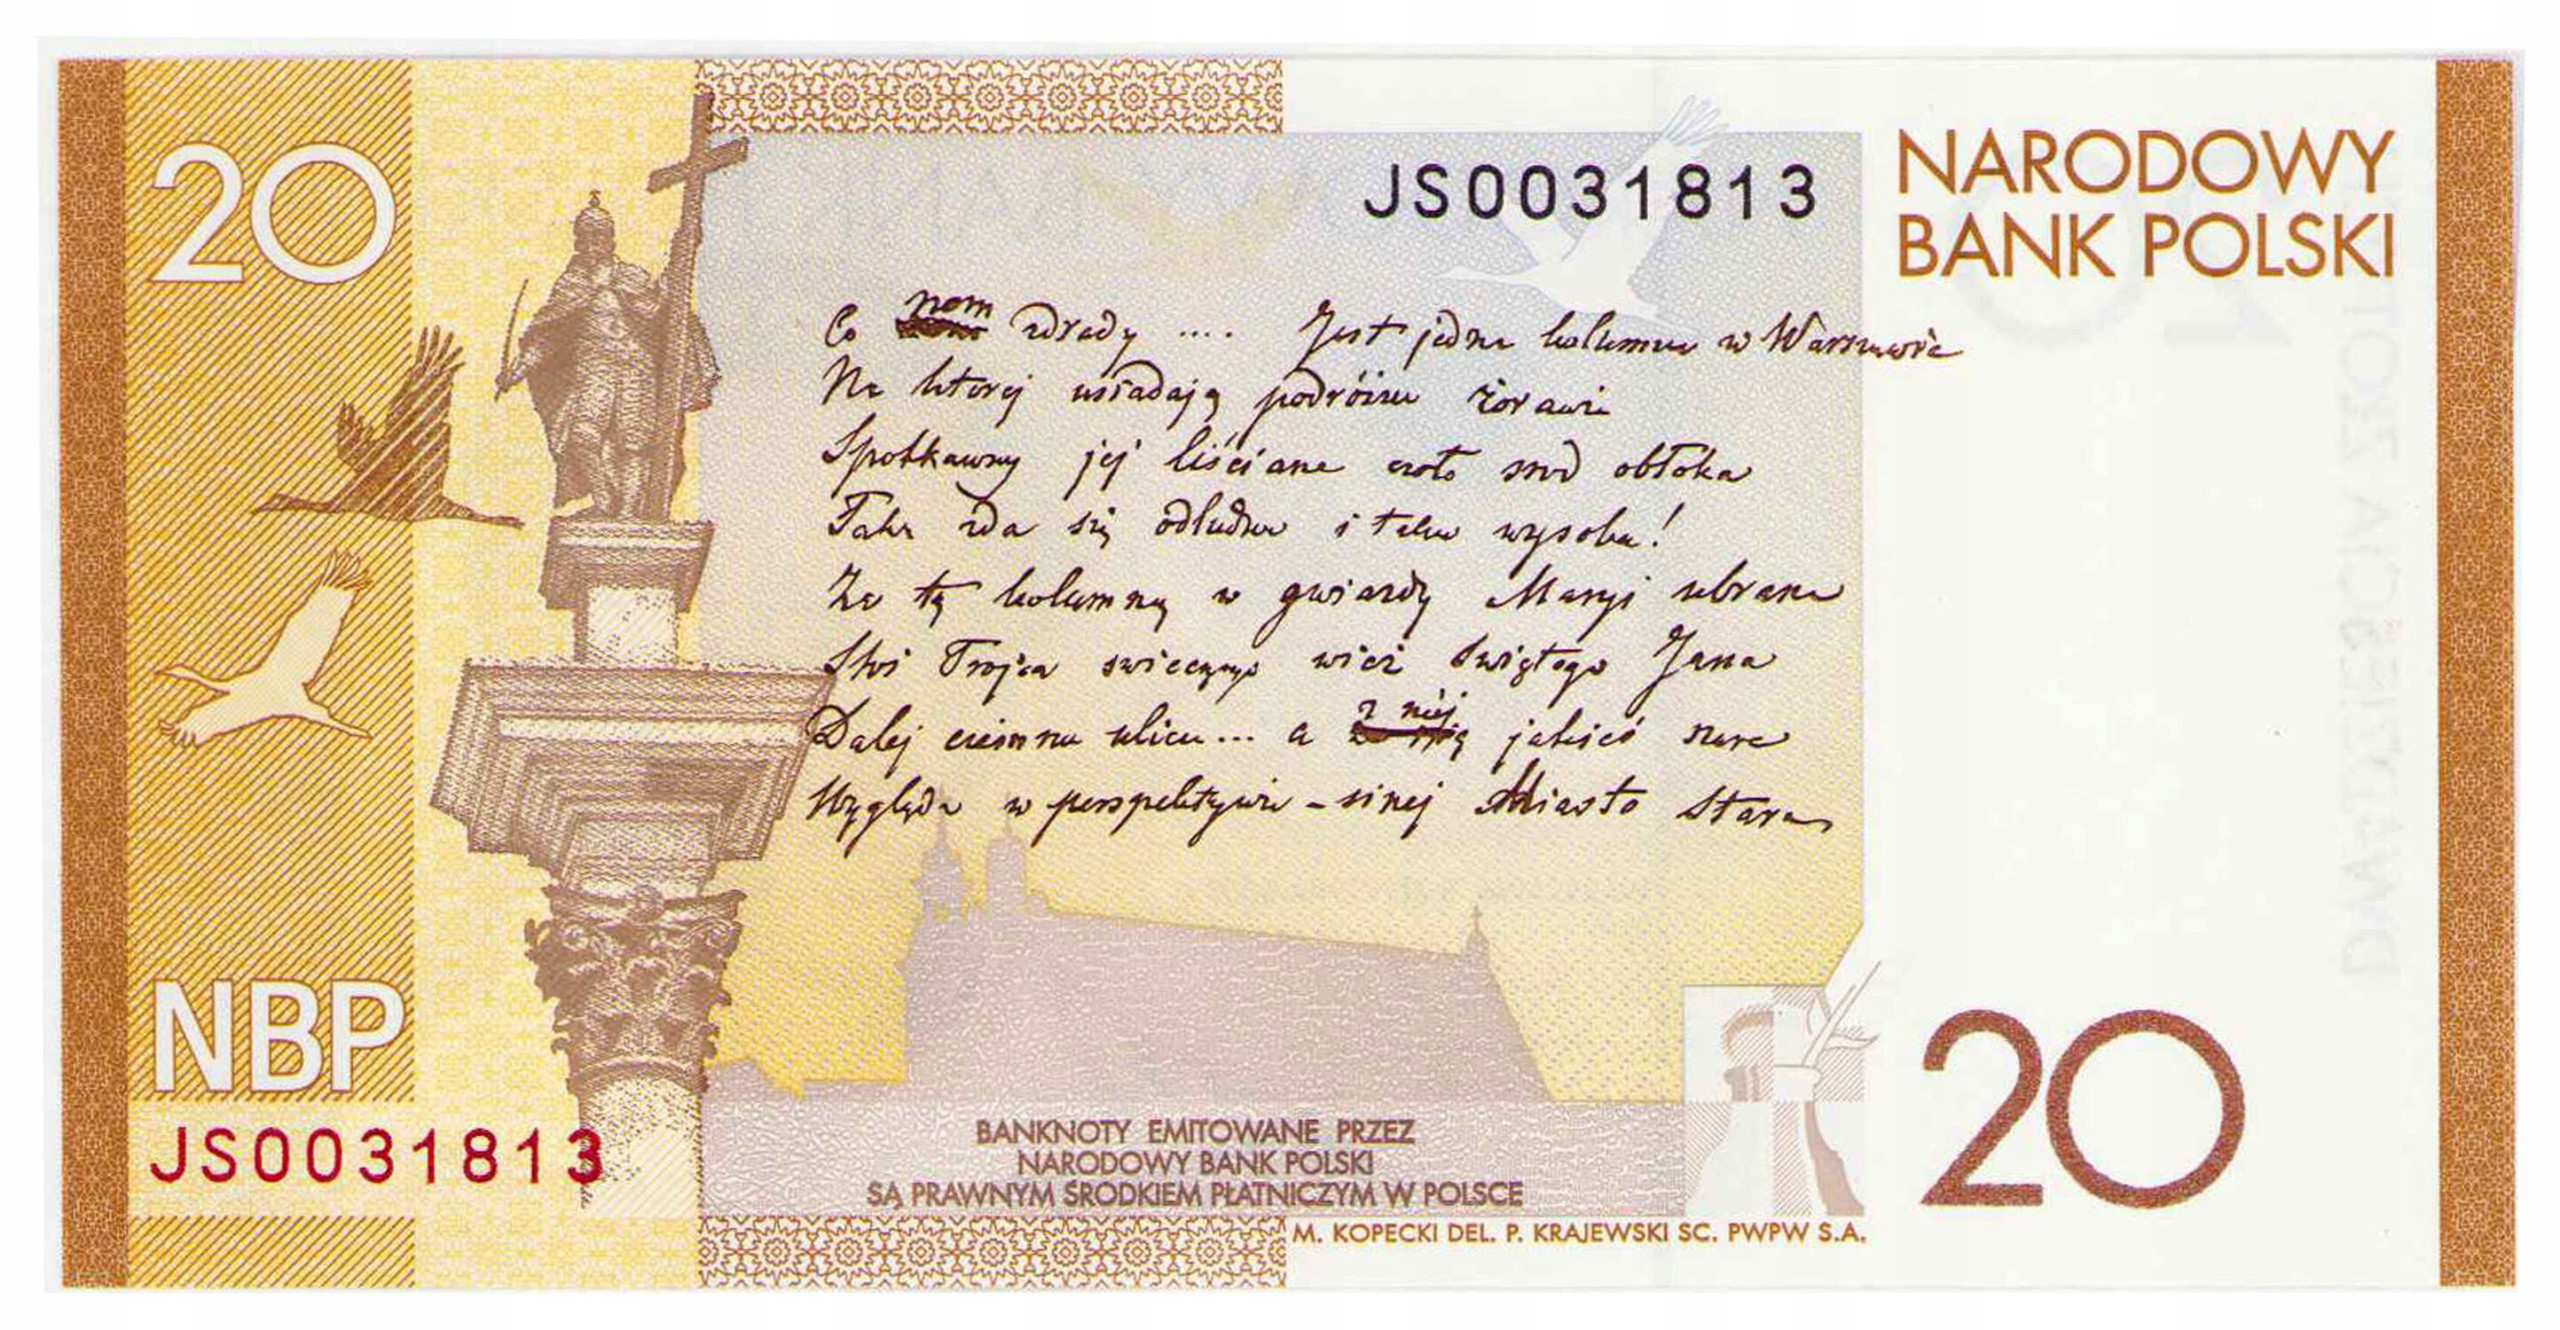 20
JS0031813
NARODOWY
BANK POLSKI
Co nam zdrady .... Jest jedna kolumna w Warszawie
Na ktorej usiadają podróżne żorawie
Spotkawszy jej liściane czoło środ obłoka
Taka zda się odludna i taka wysoka!
Za tą kolumną w gwiazdy Maryi ubrana
Stoi Trojca swiecznego wież Swiętego Jana
Dalej ciemna ulica... a z niéj jakieś szare
Wygląda w perspektywie - sinej Miasto Stare
NBP
JS0031813
BANKNOTY EMITOWANE PRZEZ
NARODOWY BANK POLSKI
SĄ PRAWNYM ŚRODKIEM PŁATNICZYM W POLSCE
20
M. KOPECKI DEL. P. KRAJEWSKI SC. PWPW S.A.